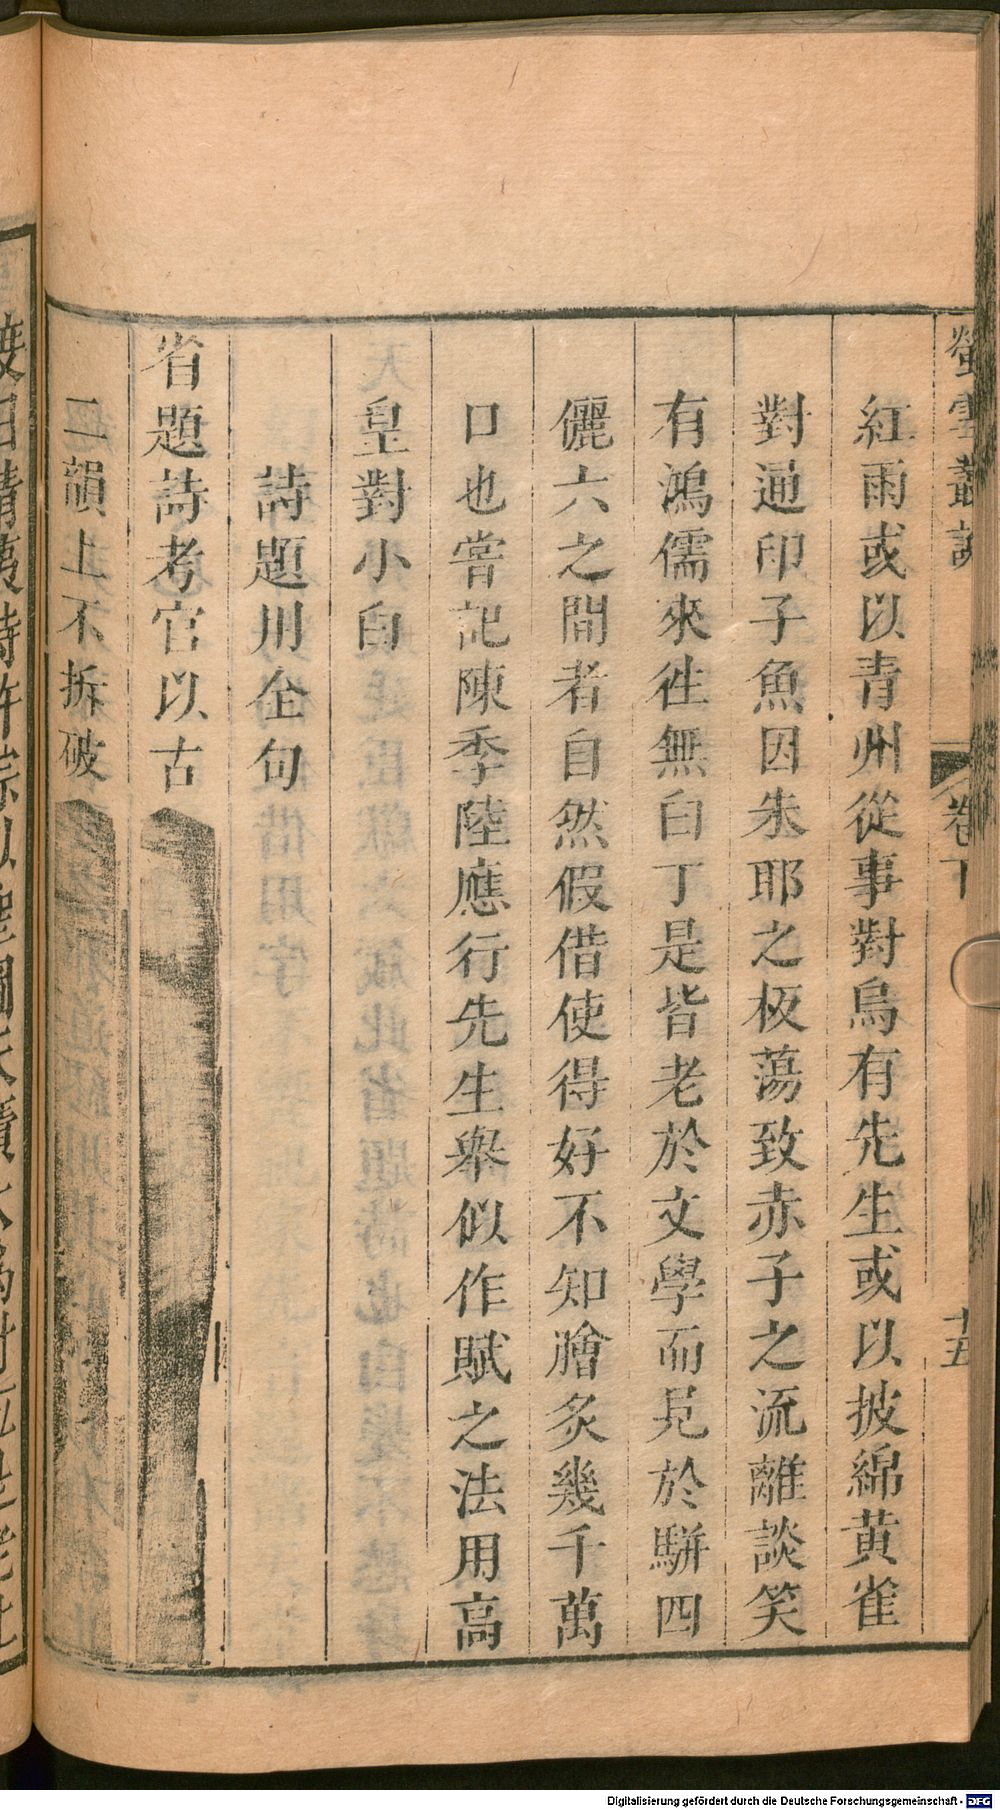 螢雪叢說
卷下
十五
紅雨或以青州從事對烏有先生或以披綿黃雀
對通印子魚因朱耶之板蕩致赤子之流離談笑
有鴻儒來往無白丁是皆老於文學而見於駢四
儷六之間者自然假借使得好不知膾炙幾千萬
口也嘗記陳季陸應行先生舉似作賦之法用高
皇對小白
詩題用全句
省題詩考官以古
二韻上不拆破
Digitalisierung gefördert durch die Deutsche Forschungsgemeinschaft - DFG